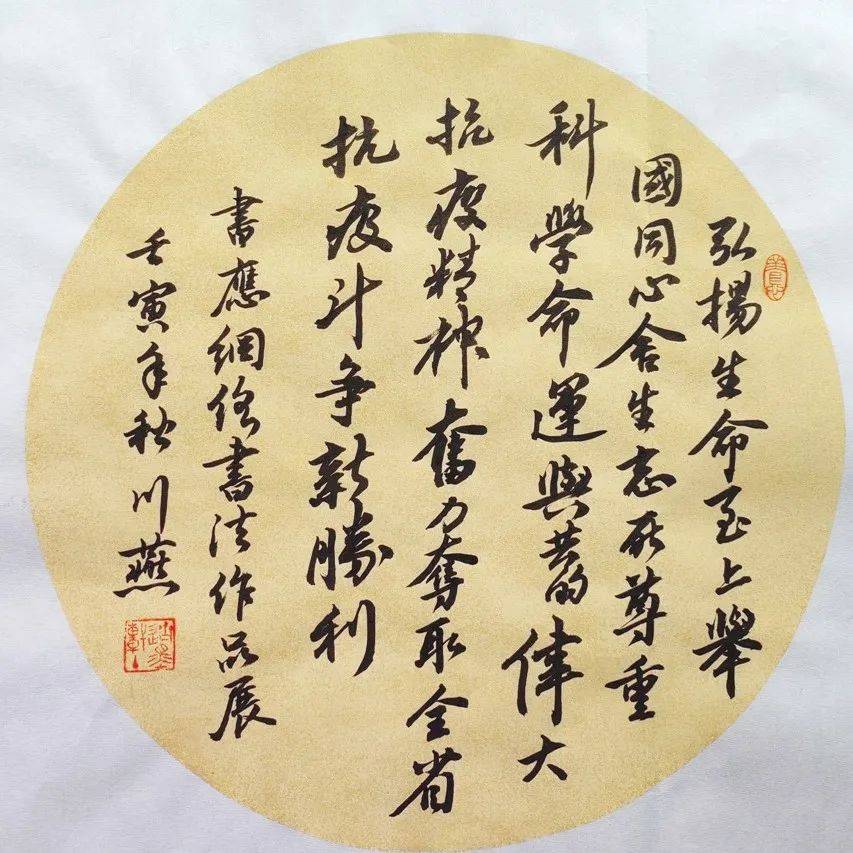 弘揚生命至上舉
國同心舍生忘死尊重
科學命運與共的偉大
抗疫精神奮力奪取全省
抗疫斗争新勝利
書應網络書法作品展
壬寅年秋川燕